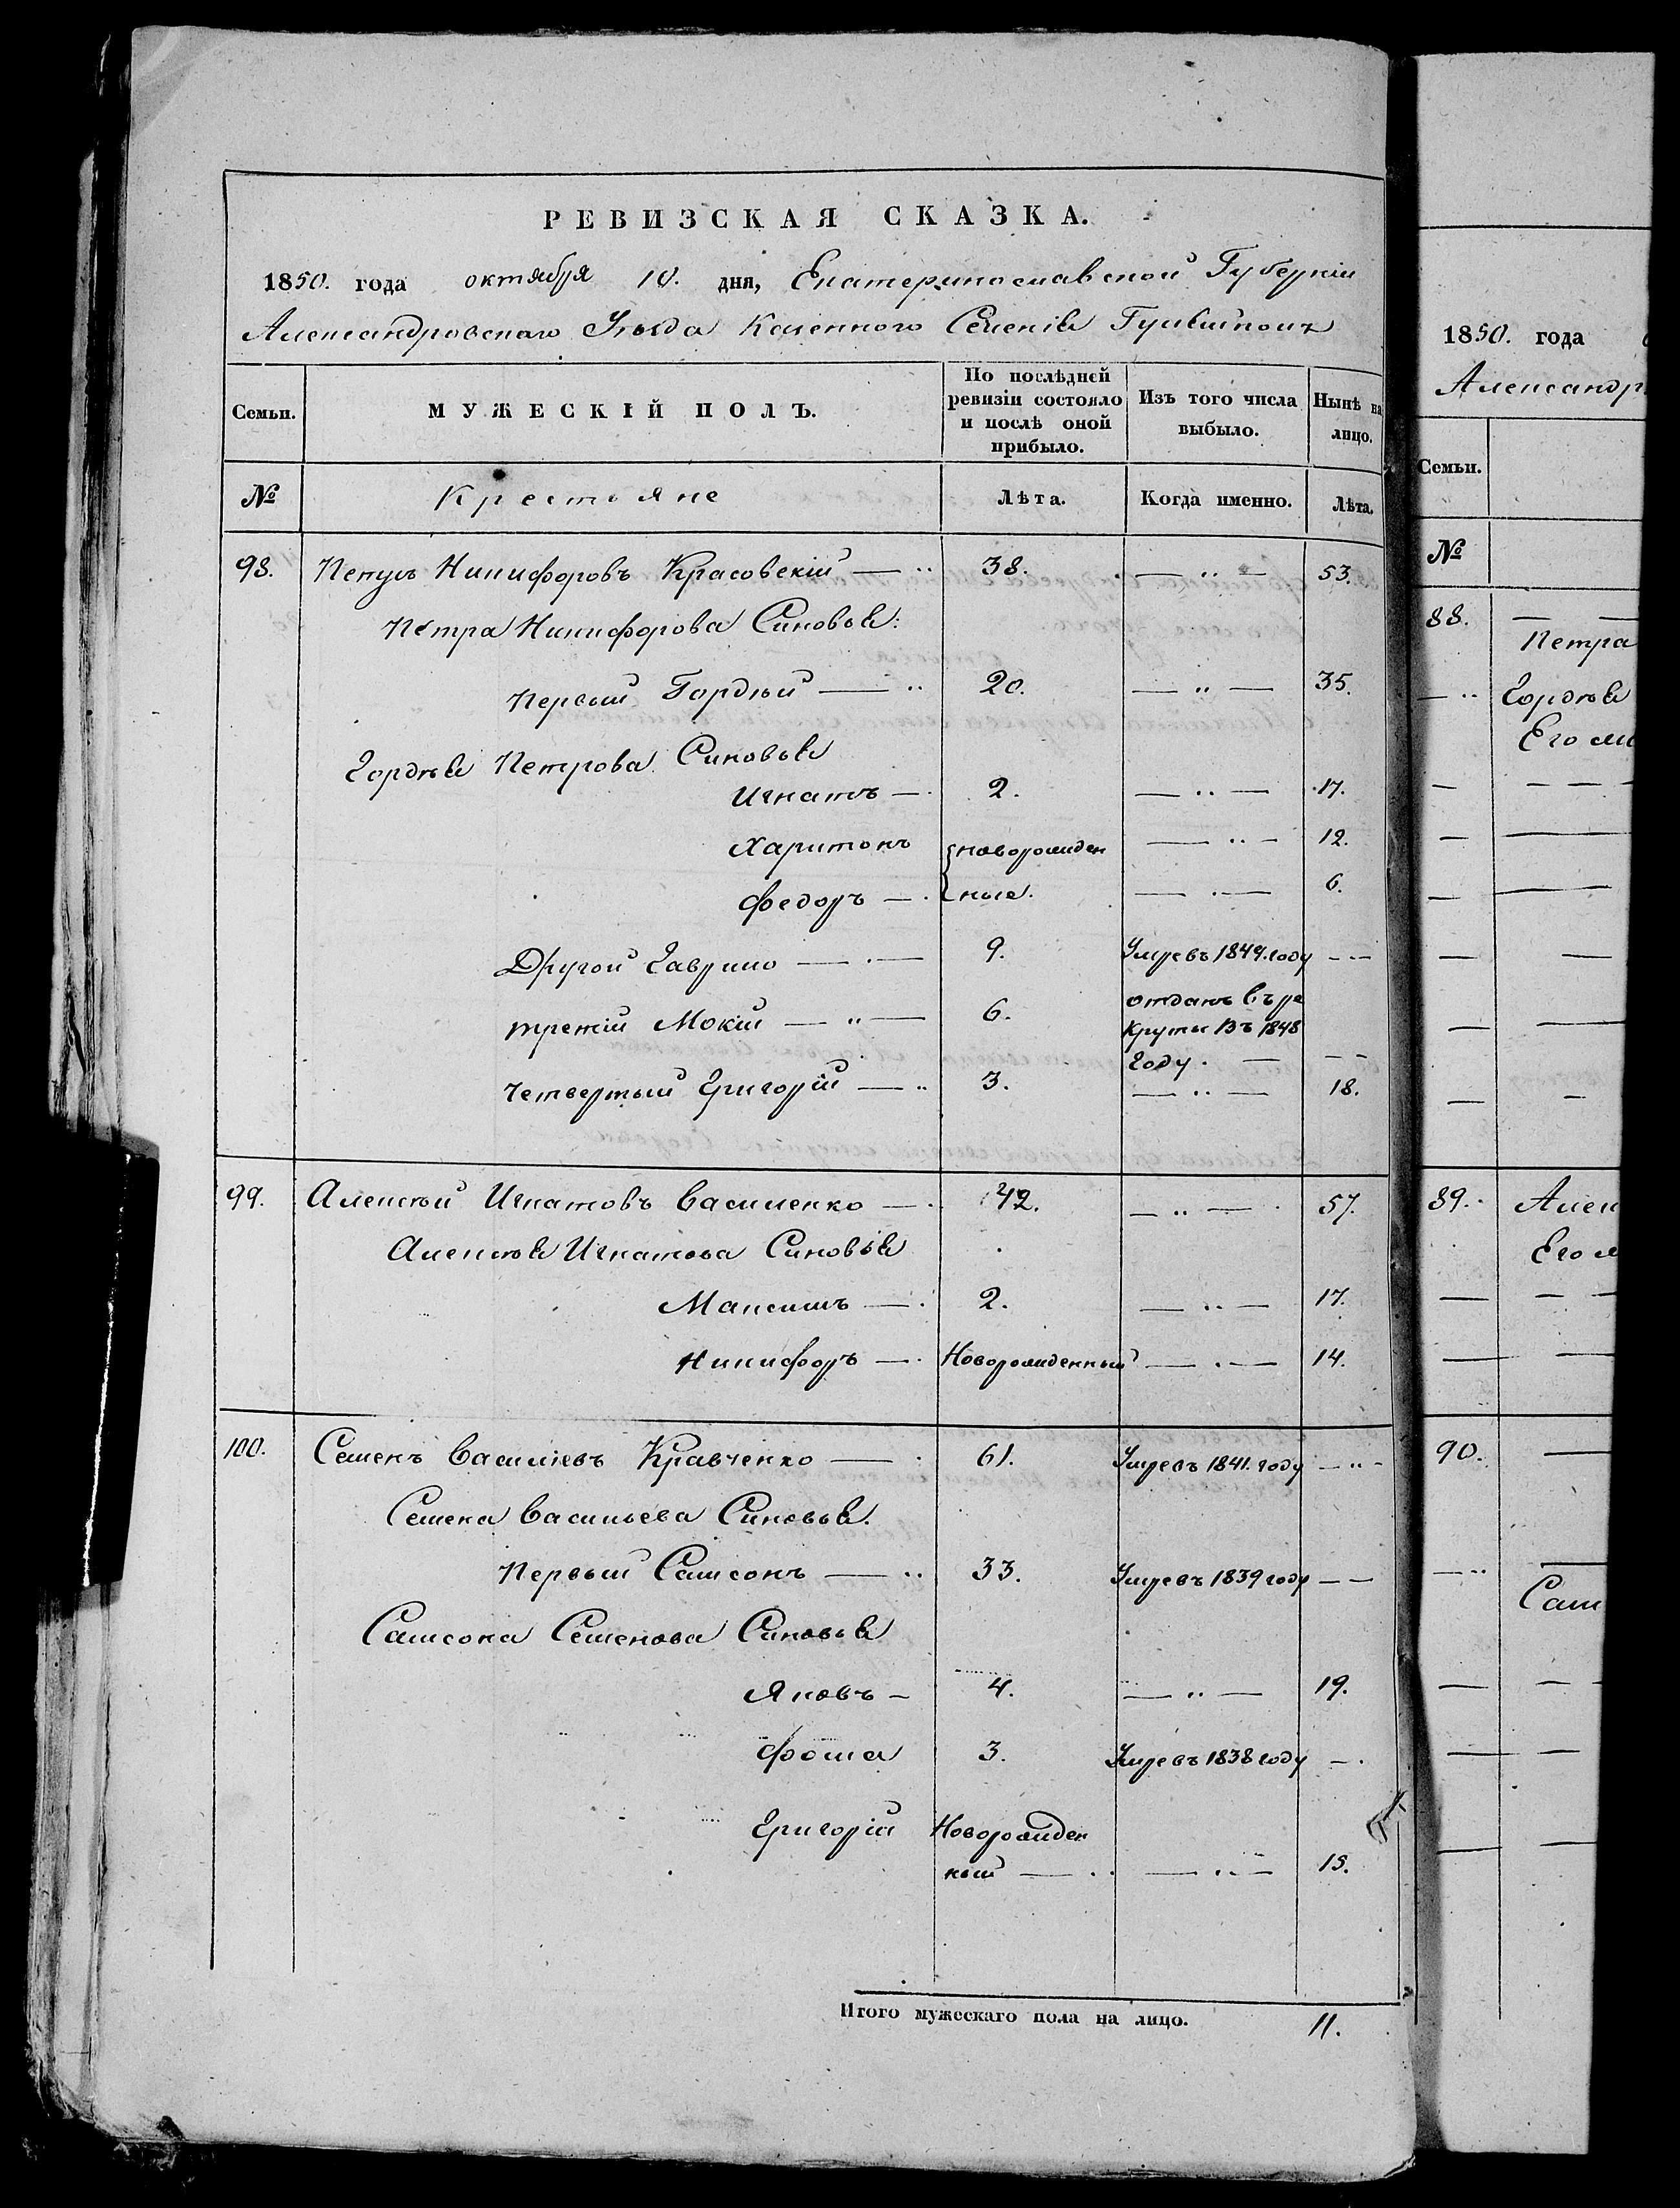 РЕВИЗСКАЯ СКАЗКА.
1850. года октября 10. дня, Екатеринославской Губерніи
Александровскаго Уѣзда Казенного Селенія Гуляйполя
Семьи. МУЖЕСКІЙ ПОЛЪ. По послѣдней ревизіи состояло и послѣ оной прибыло. Изъ того числа выбыло. Нынѣ на лицо.
№ Крестьяне Лѣта. Когда именно. Лѣта.
98. Петръ Никифоровъ Красовскій — 38. — „ — 53.
Петра Никифорова Синовья:
Первый Гордѣй — 20. — „ — 35.
Гордѣя Петрова Синовья
Игнатъ — 2. — „ — 17.
Харитонъ новорожден — „ — 12.
Федоръ — ные. — „ — 6.
Другой Гаврило — 9. Умревъ 1849. году — —
отданъ въ ре
третій Мокій — „ — 6. круты въ 1848
году. — — —
четвертый Григорій — 3. — „ — 18.
99. Алексѣй Игнатовъ Василенко — 42. — „ — 57.
Алексѣя Игнатова Синовья
Максимъ — 2. — „ — 17.
Никифоръ — Новорожденный — „ — 14.
100. Семенъ Василіевъ Кравченко — 61. Умревъ 1841. году — „ —
Семена Васильева Синовья.
Первый Самсонъ — 33. Умревъ 1839 году — —
Самсона Семенова Синовья
Яковъ — 4. — „ — 19.
Фома 3. Умревъ 1838 году —
Григорій Новорожден
ный — — „ — 15.
Итого мужескаго пола на лицо. 11.
1850. года
Александр
Семьи.
№
88. — —
Петра
— „ Гордѣя
Его
89. Алек
Его
90. —
Сам